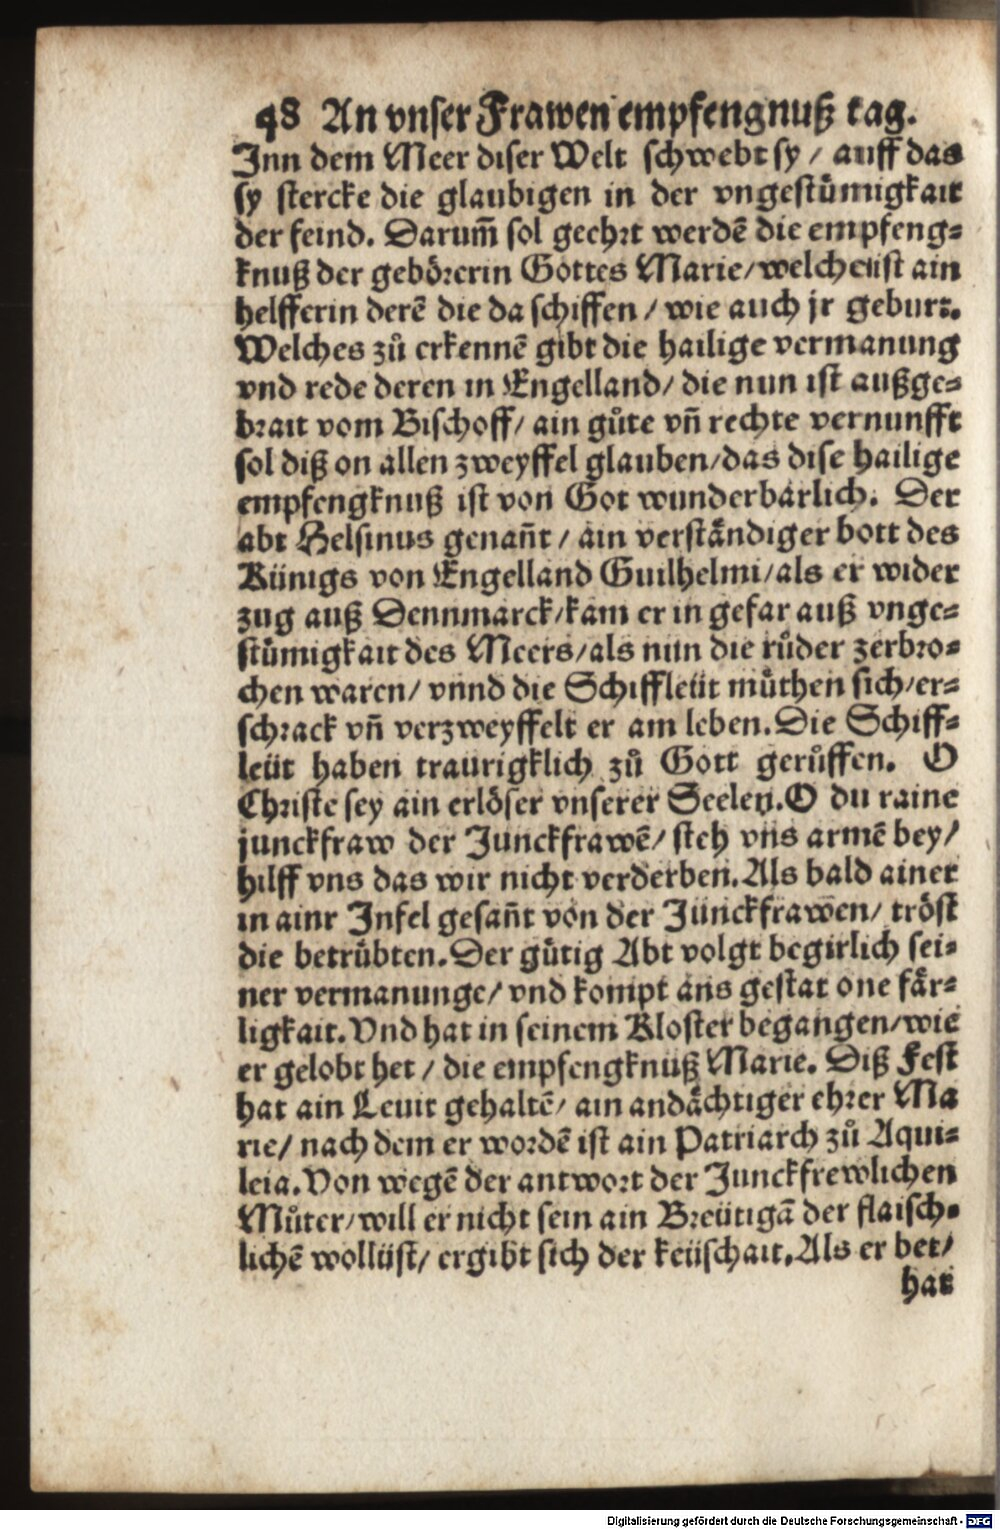 48 An vnser Frawen empfengnuß tag.
Jnn dem Meer diser Welt schwebt sy / auff das
sy stercke die glaubigen in der vngestümigkait
der feind. Darum̃ sol geehrt werdẽ die empfeng=
knuß der gebörerin Gottes Marie/ welche ist ain
helfferin derẽ die da schiffen / wie auch jr geburt.
Welches zů erkennẽ gibt die hailige vermanung
vnd rede deren in Engelland/ die nun ist außge=
brait vom Bischoff/ ain gůte vñ rechte vernunfft
sol diß on allen zweyffel glauben/ das dise hailige
empfengknuß ist von Got wunderbarlich. Der
abt Helsinus genañt / ain verständiger bott des
Künigs von Engelland Guilhelmi/ als er wider
zug auß Dennmarck/ kam er in gefar auß vnge=
stümigkait des Meers/ als nun die růder zerbro=
chen waren/ vnnd die Schiffleüt můthen sich/ er=
schrack vñ verzweyffelt er am leben. Die Schiff=
leüt haben traurigklich zů Gott gerůffen. O
Christe sey ain erlöser vnserer Seelen. O du raine
junckfraw der Junckfrawẽ/ steh vns armẽ bey/
hilff vns das wir nicht verderben. Als bald ainer
in ainr Jnsel gesañt von der Junckfrawen/ tröst
die betrübten. Der gütig Abt volgt begirlich sei=
ner vermanunge/ vnd kompt ans gestat one fär=
ligkait. Vnd hat in seinem Kloster begangen/ wie
er gelobt het / die empfengknuß Marie. Diß Fest
hat ain Leuit gehaltẽ/ ain andächtiger ehrer Ma
rie/ nach dem er wordẽ ist ain Patriarch zů Aqui=
leia. Von wegẽ der antwort der Junckfrewlichen
Můter/ will er nicht sein ain Breütigã der flaisch=
lichẽ wollüst/ ergibt sich der keüschait. Als er bet/
hat
Digitalisierung gefördert durch die Deutsche Forschungsgemeinschaft - DFG